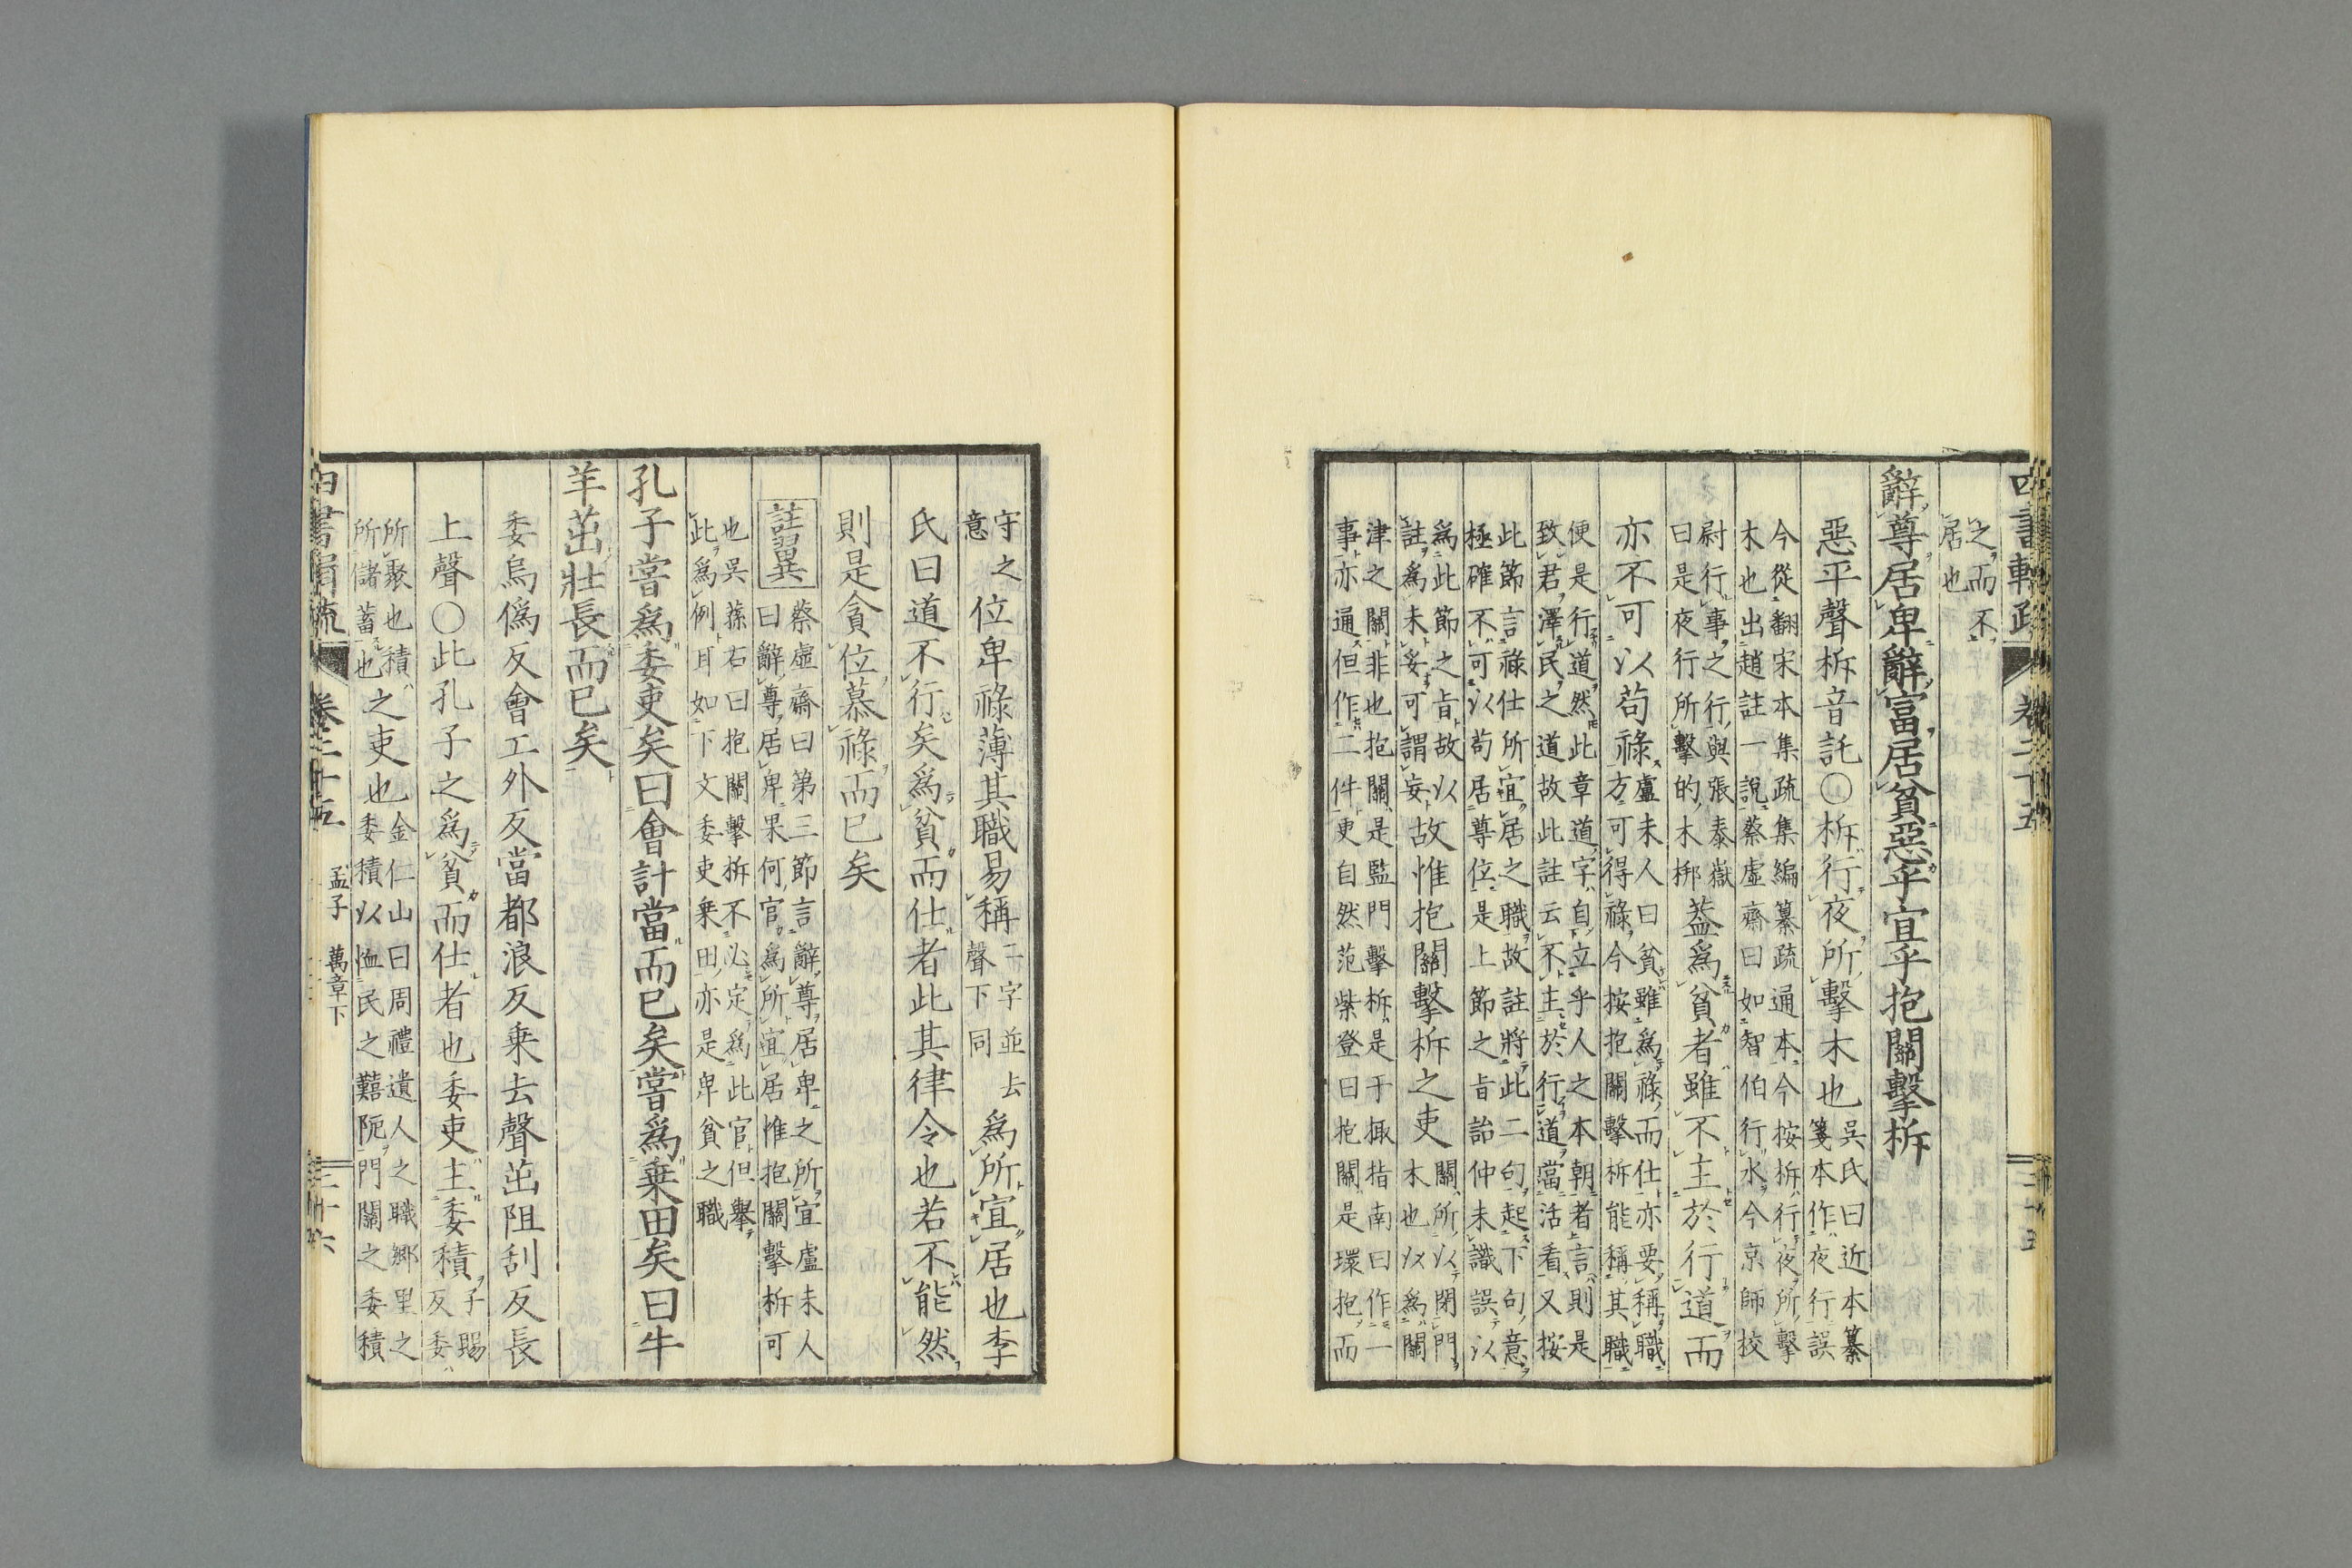 四書輯疏 卷二十五 三十五
之而不
居也
辭尊居卑辭富居貧惡乎宜乎抱關擊柝
惡平聲柝音託○柝行夜所擊木也吳氏曰近本纂
箋本作夜行誤
今從翻宋本集疏集編纂疏通本今按柝行夜所擊
木也出趙註一說蔡虛齋曰如智伯行水今京師挍
尉行事之行與張泰嶽
曰是夜行所擊的木梆蓋爲貧者雖不主於行道而
亦不可以苟祿盧未人曰貧雖爲祿而仕亦要稱職
方可得祿今按抱關擊柝能稱其職
便是行道然此章道字自立乎人之本朝者言則是
致君澤民之道故此註云不主於行道當活看又按
此節言祿仕所宜居之職故註將此二句起下句意
極確不可以苟居尊位是上節之旨詒仲未識誤以
爲此節之旨故以
註爲未妥可謂妄故惟抱關擊柝之吏關所以閉門
木也以爲關
津之關非也抱關是監門擊柝是于掫指南曰作一
事亦通但作二件吏自然范紫登曰抱關是環抱而
守之
意位卑祿薄其職易稱二字並去
聲下同爲所宜居也李
氏曰道不行矣爲貧而仕者此其律令也若不能然
則是貪位慕祿而已矣
註翼異蔡虛齋曰第三節言辭尊居卑之所宜盧未人
曰辭尊居卑果何官爲所宜居惟抱關擊柝可
也吳蓀右曰抱關擊柝不必定爲此官但舉
此爲例耳如下文委吏乗田亦是卑貧之職
孔子嘗爲委吏矣曰會計當而已矣嘗爲乗田矣曰牛
羊茁壯長而已矣
委烏僞反會工外反當都浪反乗去聲茁阻刮反長
上聲○此孔子之爲貧而仕者也委吏主委積子賜
反委
所聚也積
所儲蓄也之吏也金仁山曰周禮遺人之職郷里之
委積以恤民之囏阨門關之委積
四書輯疏 卷二十五 孟子 萬章下 三十六